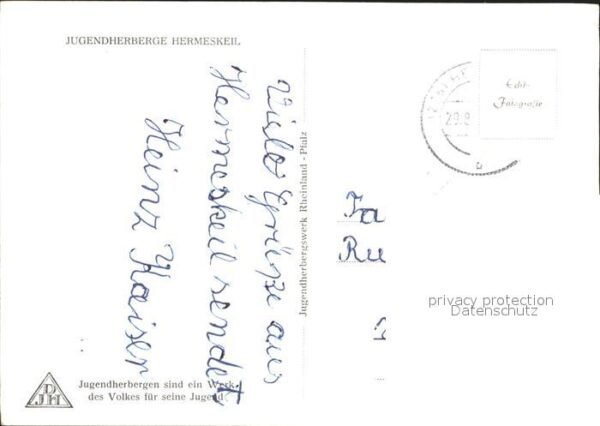 JUGENDHERBERGE HERMESKEIL
Viele Grüße aus
Hermeskeil sendet
Heinz Kaiser
Jugendherbergswerk Rheinland-Pfalz
Echt-
Fotografie
29.8
b
Fa
Ru
privacy protection
Datenschutz
DJH
Jugendherbergen sind ein Werk
des Volkes für seine Jugend